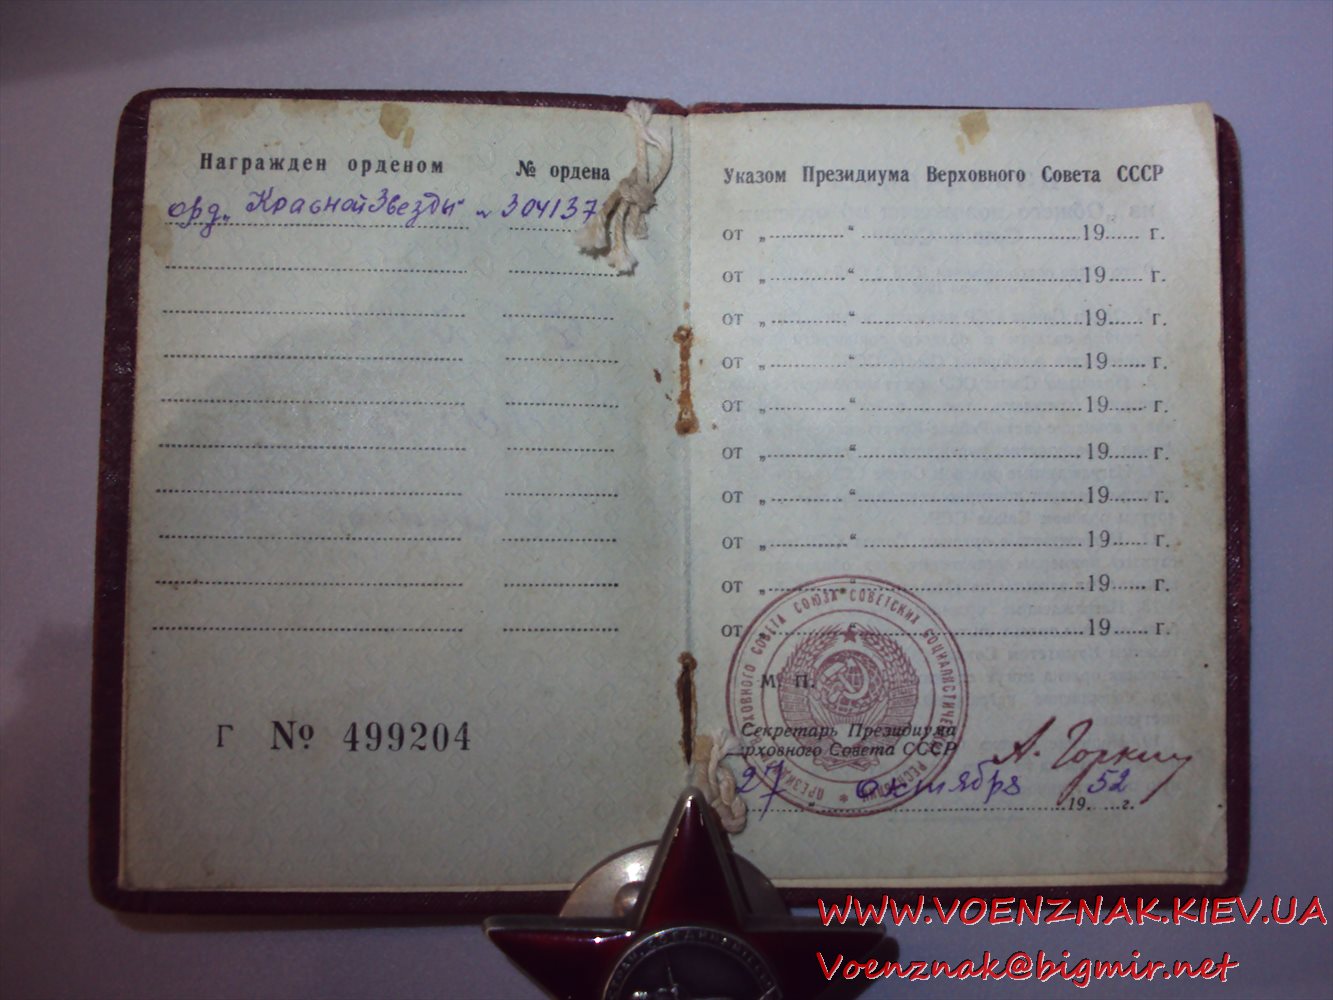 Награжден орденом
№ ордена
орд. "Красной Звезды" № 304137
Г № 499204
Указом Президиума Верховного Совета СССР
от „ “ 19 г.
от „ “ 19 г.
от „ “ 19 г.
от „ “ 19 г.
от „ “ 19 г.
от „ “ 19 г.
от „ “ 19 г.
от „ “ 19 г.
от „ “ 19 г.
от „ “ 19 г.
М. П.
ПРЕЗИДИУМ ВЕРХОВНОГО СОВЕТА СОЮЗА СОВЕТСКИХ СОЦИАЛИСТИЧЕСКИХ РЕСПУБЛИК
Секретарь Президиума
Верховного Совета СССР
А. Горкин
27 октября 1952 г.
WWW.VOENZNAK.KIEV.UA
Voenznak@bigmir.net